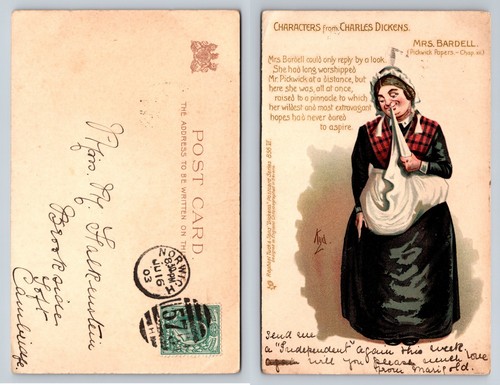 POST CARD
THE ADDRESS TO BE WRITTEN ON THIS
Miss M. Falkenstein
Brookside
Cambridge
NORWICH
JU 16
03
CHARACTERS from CHARLES DICKENS.
MRS. BARDELL.
(Pickwick Papers.—Chap. xii.)
Mrs Bardell could only reply by a look.
She had long worshipped
Mr. Pickwick at a distance, but
here she was, all at once,
raised to a pinnacle to which
her wildest and most extravagant
hopes had never dared
to aspire.
Kyd
Send me
a "Independent" again this week,
again will you please much love
from Marigold.